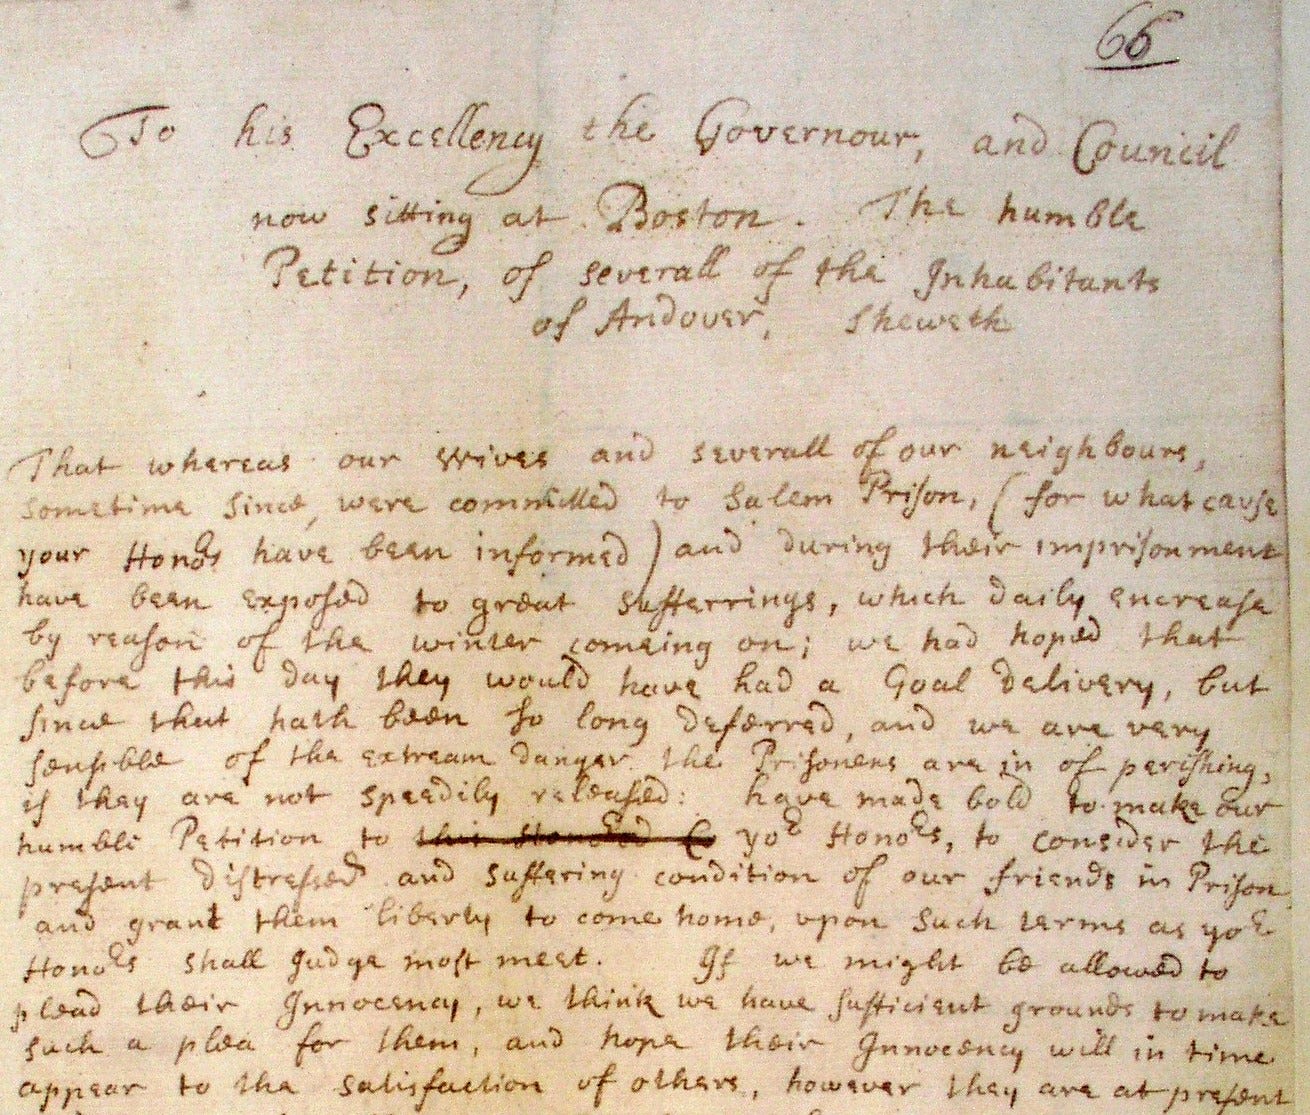 66
To his Excellency the Governour, and Council
now sitting at Boston. The humble
Petition, of severall of the Inhabitants
of Andover, sheweth
That whereas our wives and severall of our neighbours,
sometime since, were committed to Salem Prison, (for what cause
your Honors have been informed) and during their imprisonment
have been exposed to great sufferrings, which daily encrease
by reason of the winter comeing on; we had hoped that
before this day they would have had a Goal delivery, but
since that hath been so long deferred, and we are very
sensible of the extream danger the Prisoners are in of perishing,
if they are not speedily released: have made bold to make our
humble Petition to this Honored C yor Honors, to consider the
present distressed and suffering condition of our friends in Prison
and grant them liberty to come home, upon such terms as yor
Honors shall Judge most meet. If we might be allowed to
plead their Innocency, we think we have sufficient grounds to make
such a plea for them, and hope their Innocency will in time
appear to the satisfaction of others, however they are at present